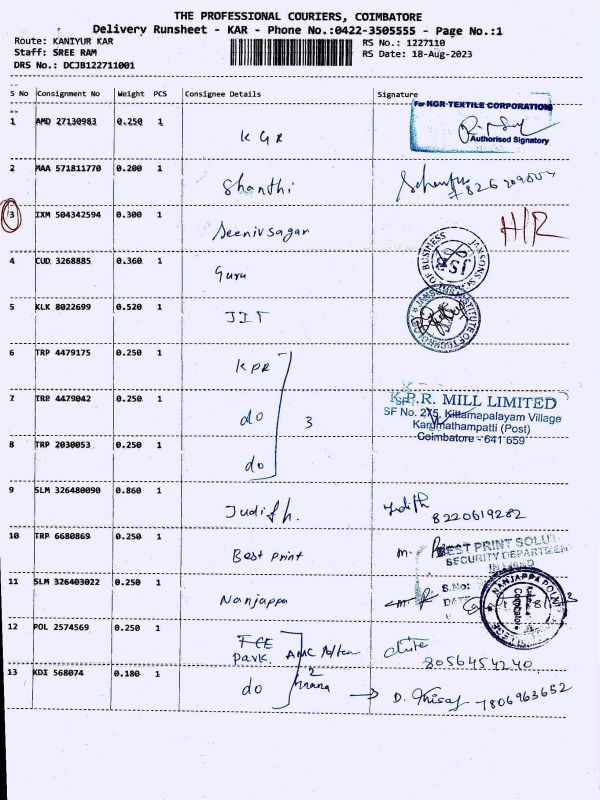 THE PROFESSIONAL COURIERS, COIMBATORE
Delivery Runsheet - KAR - Phone No.:0422-3505555 - Page No.:1
Route: KANIYUR KAR
RS No.: 1227110
Staff: SREE RAM
RS Date: 18-Aug-2023
DRS No.: DCJB122711001
S No Consignment No Weight PCS Consignee Details Signature
For KGR TEXTILE CORPORATION
1 AMD 27130983 0.250 1 KGR
Authorised Signatory
2 MAA 571811770 0.200 1 Shanthi
3 IXM 504342594 0.300 1 Seenivsagar H/R
4 CUD 3268885 0.360 1 Guru JSB
OF BUSINESS
5 KLK 8022699 0.520 1 JIT
JANSONS INSTITUTE OF TECHNOLOGY
6 TRP 4479175 0.250 1 KPR
7 TRP 4479042 0.250 1 do 3
K.P.R. MILL LIMITED
SF No. 275, Kittamapalayam Village
Karumathampatti (Post)
Coimbatore - 641 659
8 TRP 2030053 0.250 1 do
9 SLM 326480090 0.860 1 Judith. Judith
8220619282
10 TRP 6680869 0.250 1 Best print
BEST PRINT SOLUT
SECURITY DEPARTMEN
11 SLM 326403022 0.250 1 Nanjappa
S.No:
DATE
NANJAPPA
Coimbatore
12 POL 2574569 0.250 1 FCE
park.
8056454240
13 KDI 568074 0.180 1 do 2
D. 7806963652